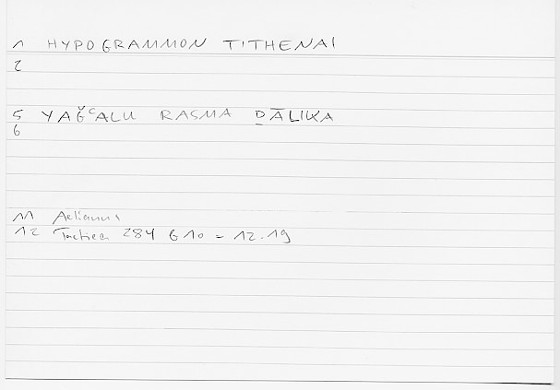 1 HYPOGRAMMON TITHENAI
2
5 YAǦʿALU RASMA ḎĀLIKA
6
11 Aelianus
12 Tactica 284 610 = 12.19